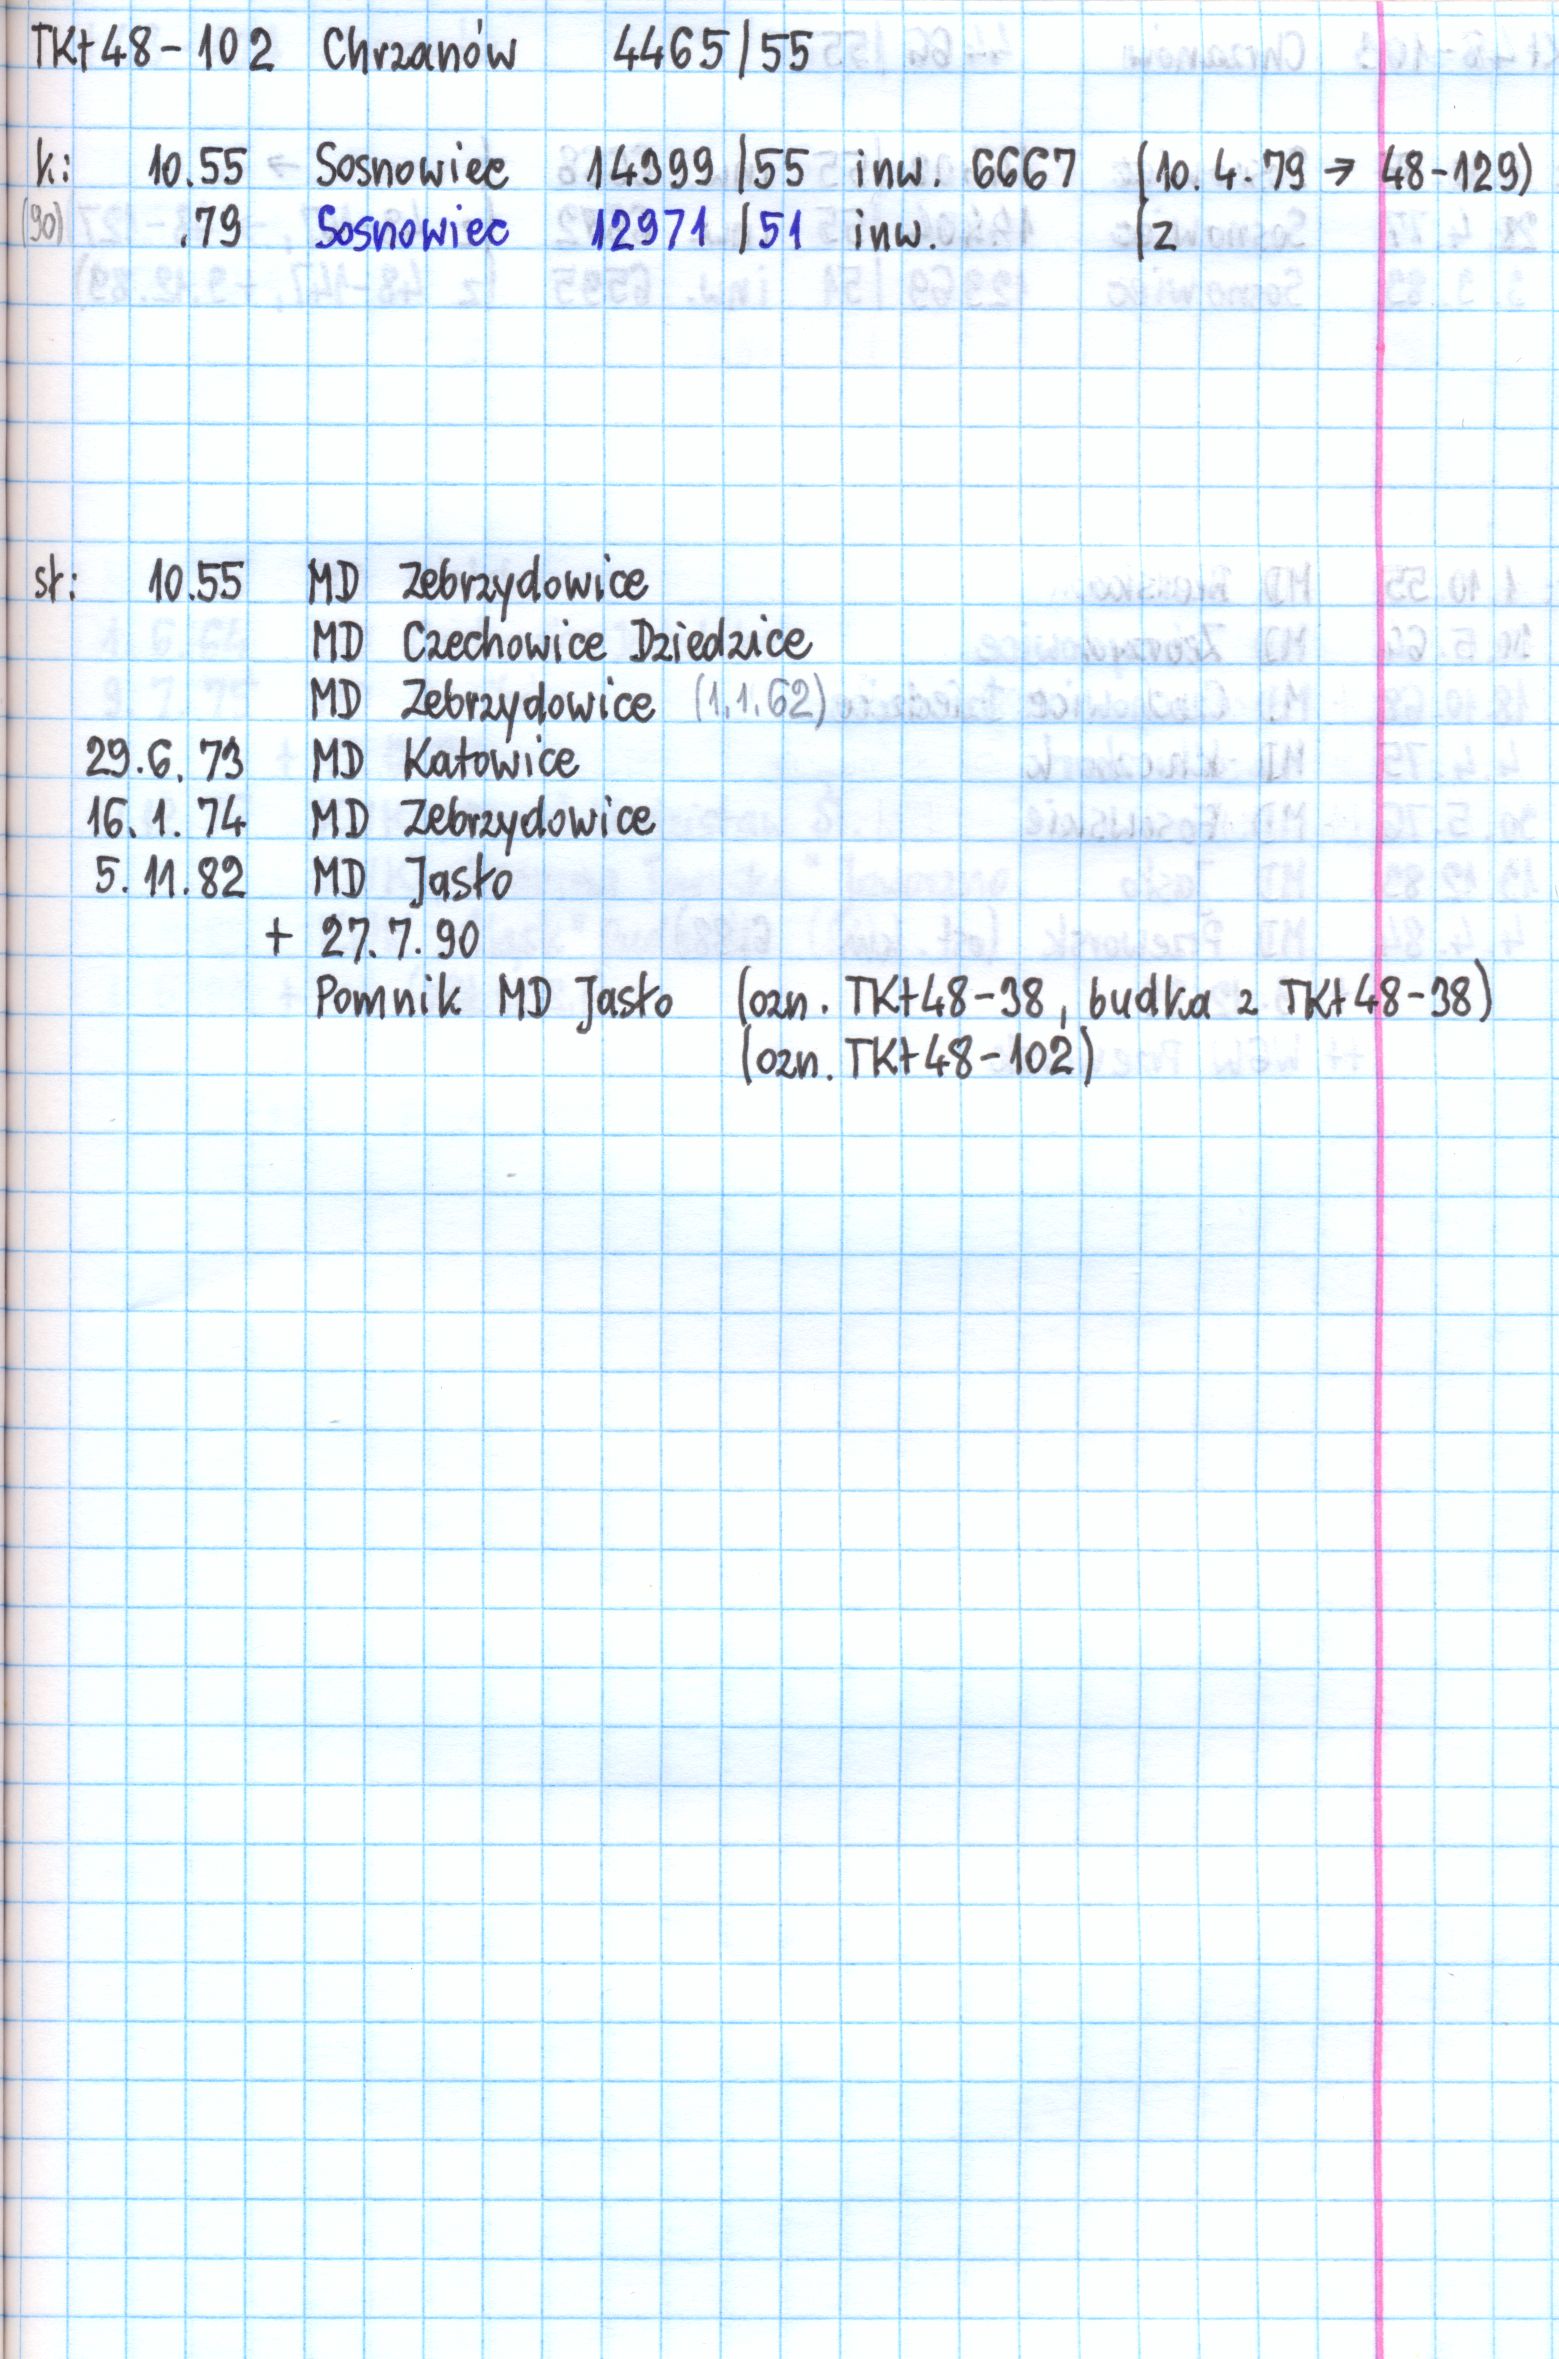 TKt48-102 Chrzanów 4465/55
k: 10.55 Sosnowiec 14399/55 inw. 6667 (10.4.79 → 48-129)
(90) .79 Sosnowiec 12971/51 inw. (z
st: 10.55 MD Zebrzydowice
MD Czechowice Dziedzice
MD Zebrzydowice (1.1.62)
29.6.73 MD Katowice
16.1.74 MD Zebrzydowice
5.11.82 MD Jasło
+ 27.7.90
Pomnik MD Jasło (ozn. TKt48-38, budka z TKt48-38)
(ozn. TKt48-102)